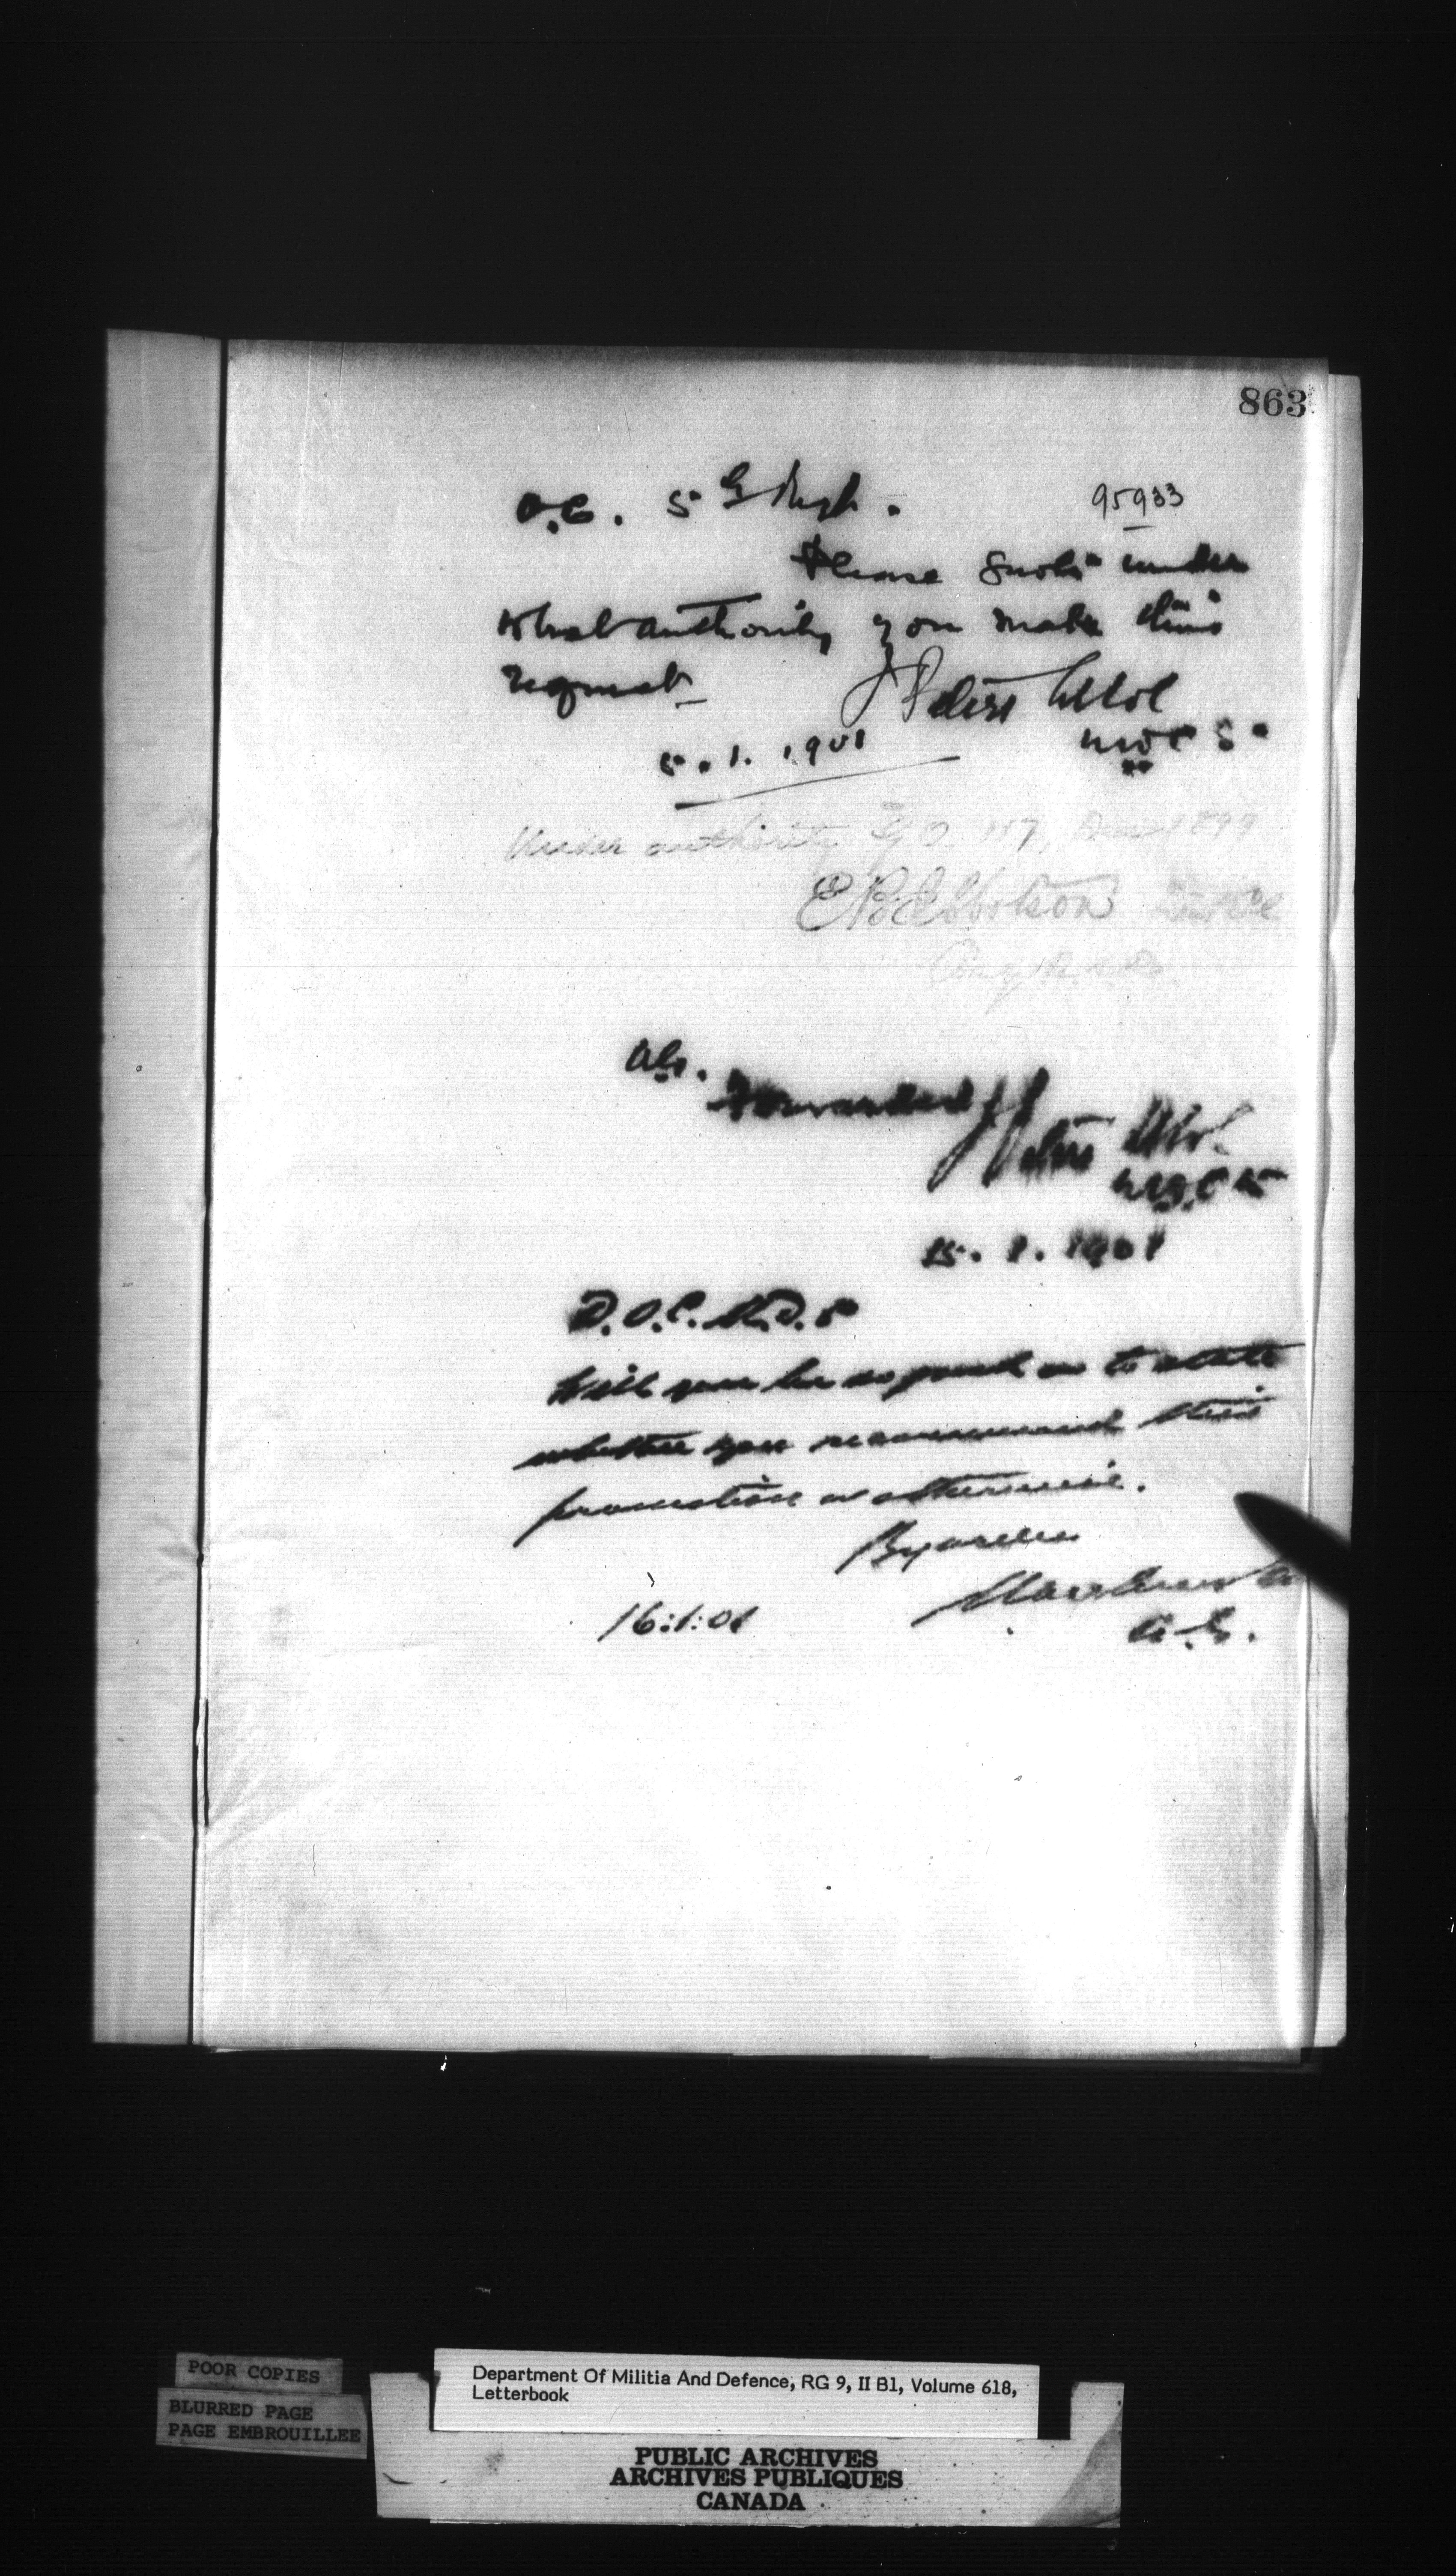 863
95933
O.C. 5 G Regt.
Please quote under
what authority you make this
request
J Peters Lt Col
5.1.1901
Under authority G O. 157, Dec 1899
E B Ibbotson
A.G.
Forwarded J Peters Lt Col
15.1.1901
D.O.C. M.D. 5
Will you be so good as to state
whether you recommend this
promotion or otherwise.
By order
16:1:01
A.G.
POOR COPIES
BLURRED PAGE
PAGE EMBROUILLEE
Department Of Militia And Defence, RG 9, II B1, Volume 618,
Letterbook
PUBLIC ARCHIVES
ARCHIVES PUBLIQUES
CANADA